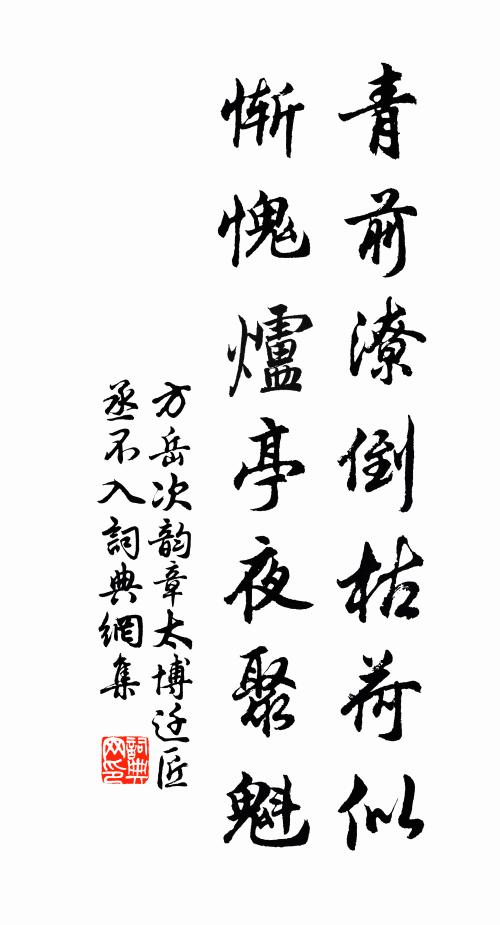 青前潦倒枯荷似
慚愧爐亭夜聚魁
方岳次韵章太博迁匠
丞不入詞典網集
詞典
网印